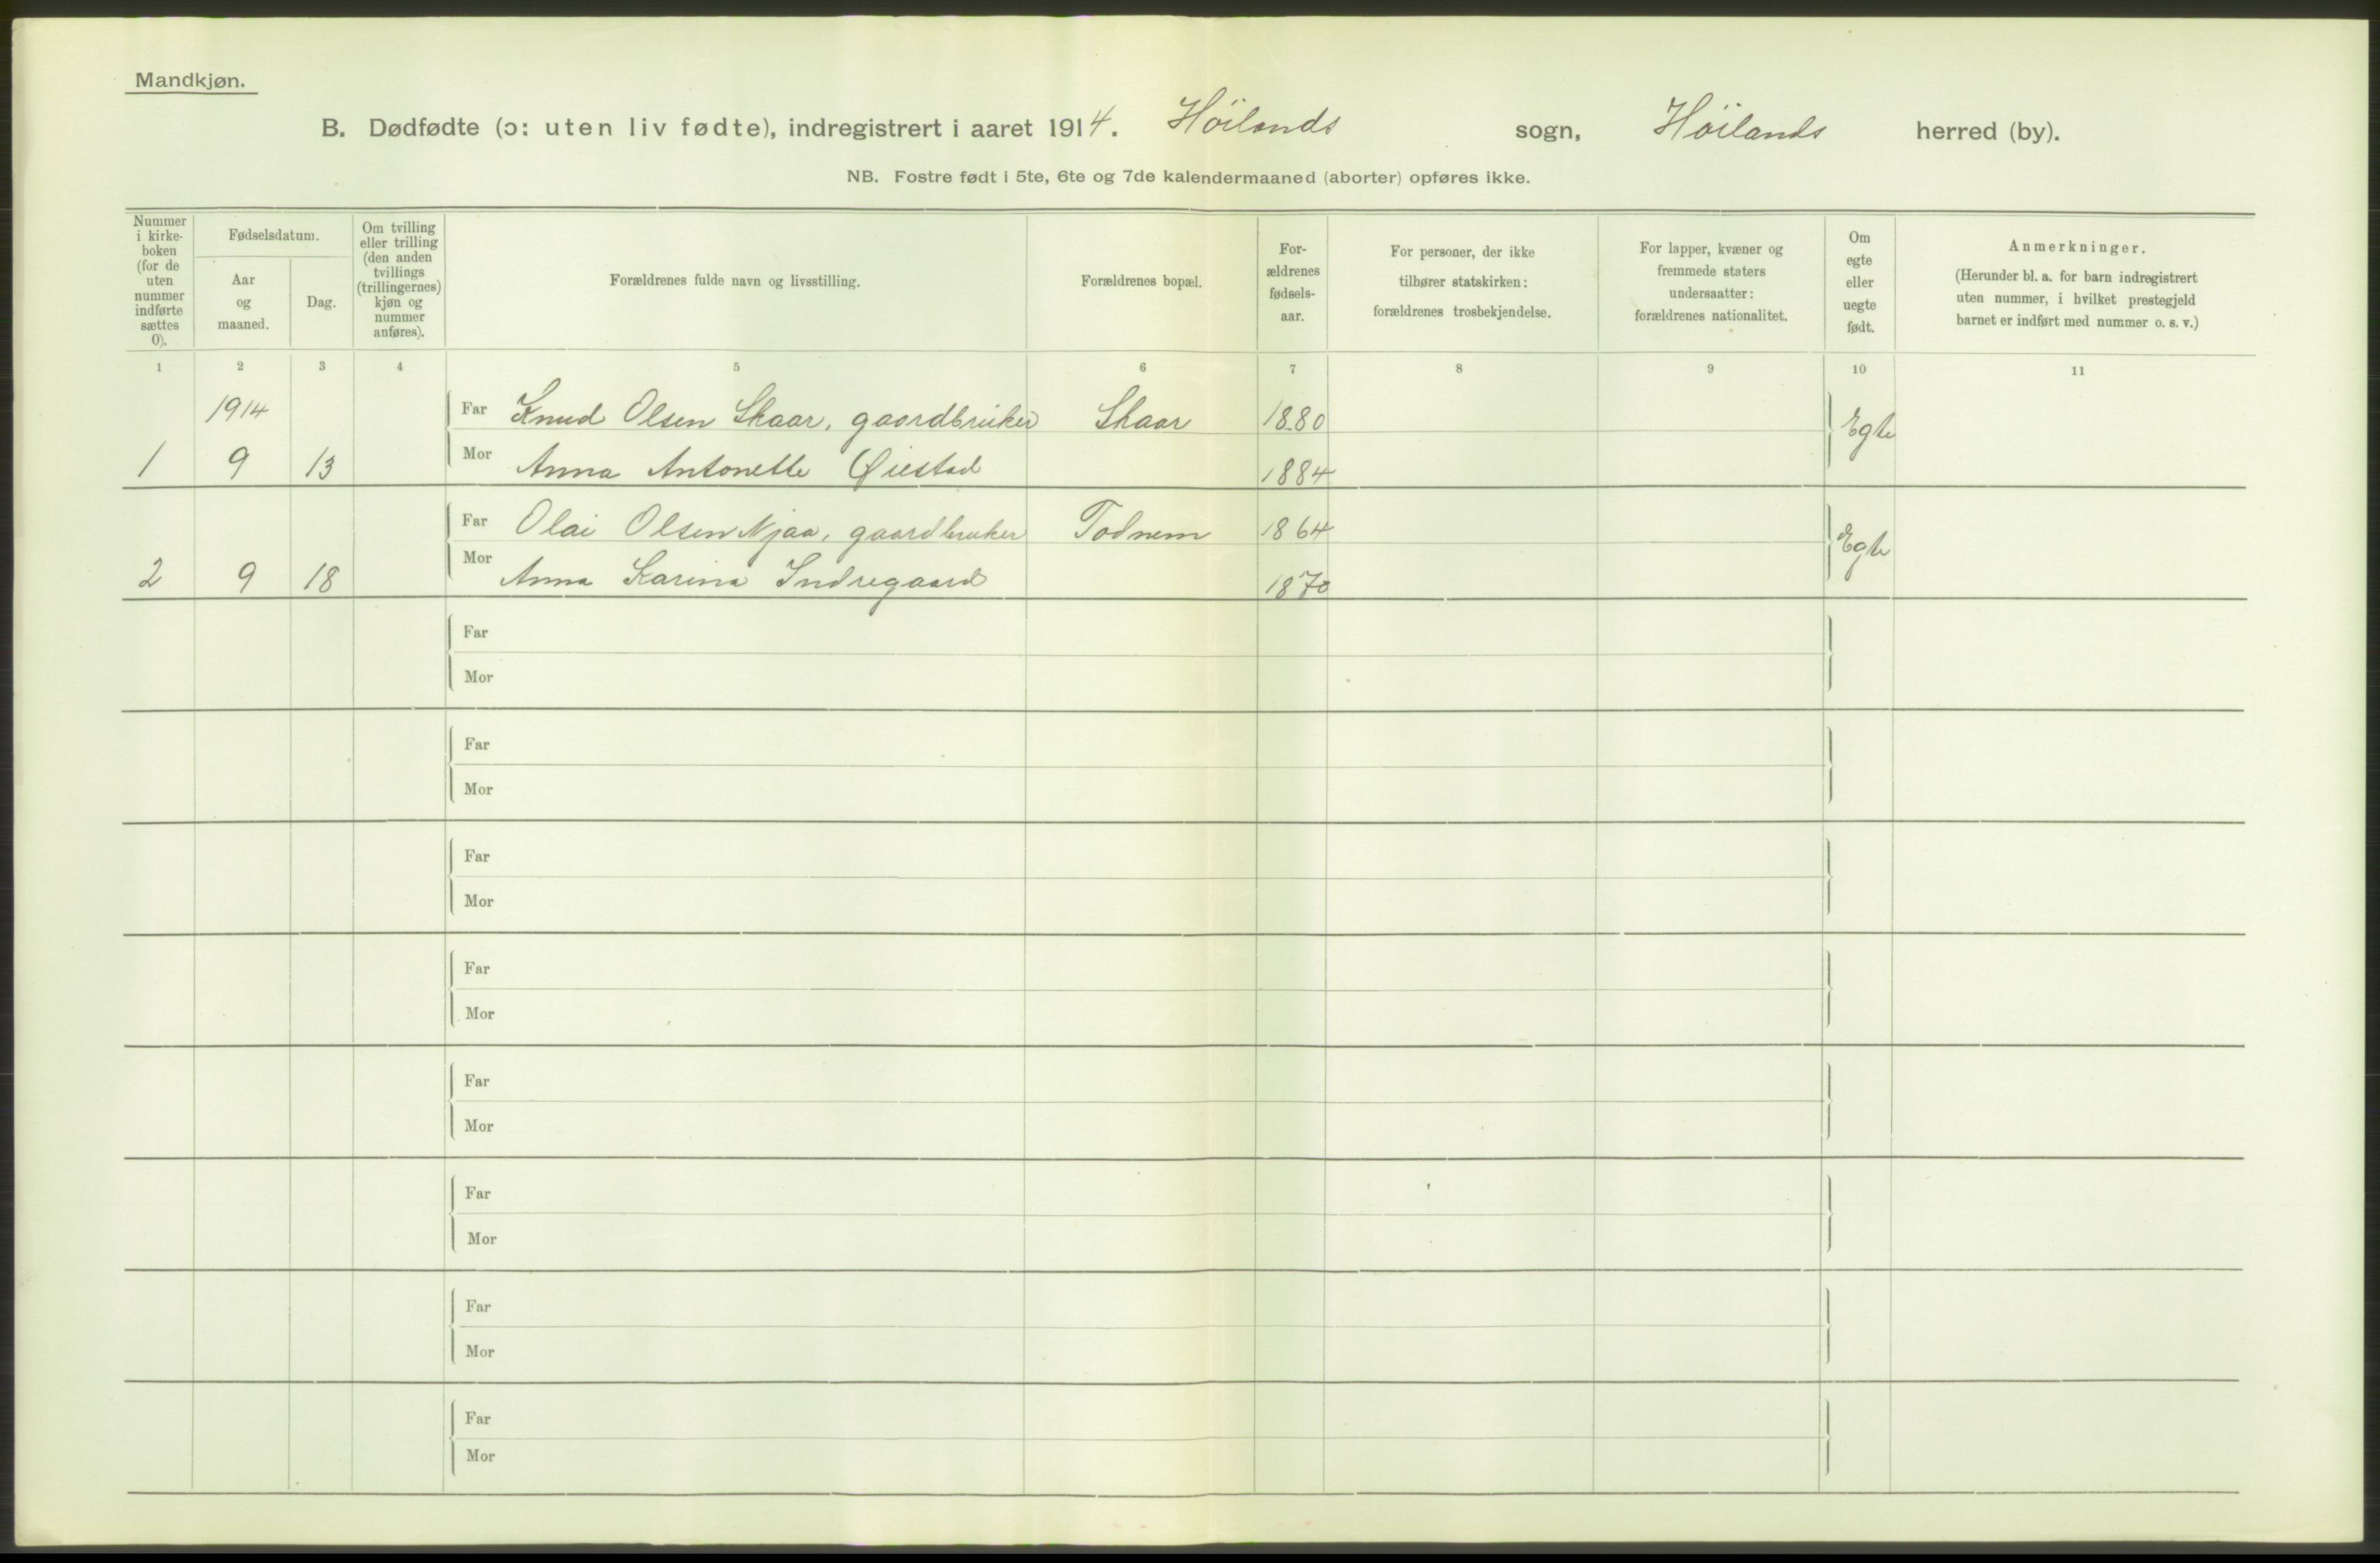 Mandkjøn.
B. Dødfødte (ɔ: uten liv fødte), indregistrert i aaret 1914. Höilands sogn, Höilands herred (by).
NB. Fostre født i 5te, 6te og 7de kalendermaaned (aborter) opføres ikke.
Nummer
i kirke-
boken
(for de
uten
nummer
indførte
sættes
0).
Fødselsdatum.
Aar
og
maaned.
Dag.
Om tvilling
eller trilling
(den anden
tvillings
(trillingernes)
kjøn og
nummer
anføres).
Forældrenes fulde navn og livsstilling.
Forældrenes bopæl.
For-
ældrenes
fødsels-
aar.
For personer, der ikke
tilhører statskirken:
forældrenes trosbekjendelse.
For lapper, kvæner og
fremmede staters
undersaatter:
forældrenes nationalitet.
Om
egte
eller
uegte
født.
Anmerkninger.
(Herunder bl. a. for barn indregistrert
uten nummer, i hvilket prestegjeld
barnet er indført med nummer o. s. v.)
1 2 3 4 5 6 7 8 9 10 11
1914 Far Knud Olsen Skaar, gaardbruker Skaar 1880 Egte
1 9 13 Mor Anna Antonette Øiestad 1884
Far Olai Olsen Njaa, gaardbruker Todnem 1864 Egte
2 9 18 Mor Anna Karina Indregaard 1870
Far
Mor
Far
Mor
Far
Mor
Far
Mor
Far
Mor
Far
Mor
Far
Mor
Far
Mor